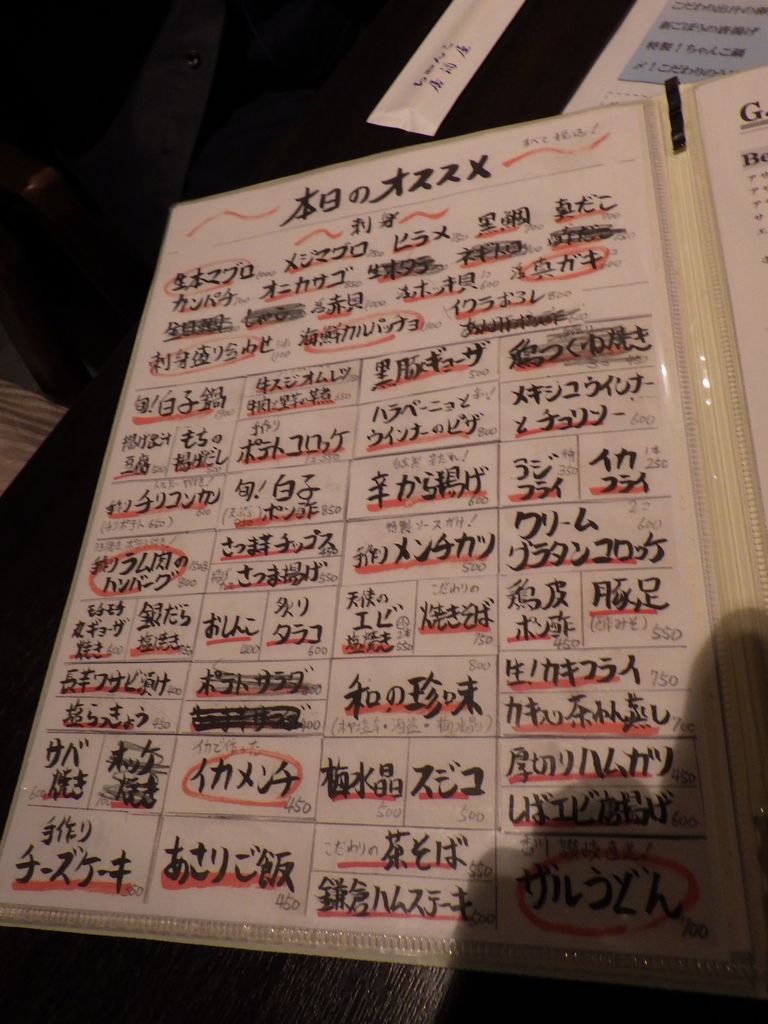 本日のオススメ
すべて税込!
刺身
生本マグロ メジマグロ ヒラメ 黒鯛 真だこ
カンパチ オニカサゴ 生本タラ ネギトロ
活赤貝 活ホッキ貝 活真ガキ
刺身盛り合わせ 海鮮カルパッチョ イクラおろし 800
旬!白子鍋
牛スジオムレツ
黒豚ギョーザ 500
鶏つくね焼き
揚げ出汁豆腐
もちの揚げだし
手作り ポテトコロッケ
ハラペーニョとウインナーのピザ 800
メキシコウインナーとチョリソー 600
手作り チリコンカン 600
旬!白子ポン酢 850
辛から揚げ 600
アジフライ 350
イカフライ 1本 250
手作り ラム肉のハンバーグ 800
さつま芋チップス
さつま揚げ 550
特製ソースがけ!
手作り メンチカツ 500
クリームグラタンコロッケ 2コ 600
モチモチ丸ギョーザ焼き 600
銀だら塩焼き
おしんこ 400
炙りタラコ
天使のエビ塩焼き
こだわりの焼きそば 750
鶏皮ポン酢 450
豚足 (酢みそ) 550
長芋ワサビ漬け 400
塩らっきょう 450
ポテトサラダ
和の珍味 800
生!カキフライ 750
カキ入り茶わん蒸し 700
サバ焼き
ホッケ焼き
イカで作った
イカメンチ 450
梅水晶 500
スジコ 500
厚切りハムカツ 450
しばエビ唐揚げ 600
手作り
チーズケーキ 350
あさりご飯 450
こだわりの茶そば 550
鎌倉ハムステーキ 500
香川 讃岐直送!
ザルうどん 700
新ごぼうの唐揚げ
特製!ちゃんこ鍋
G
Be